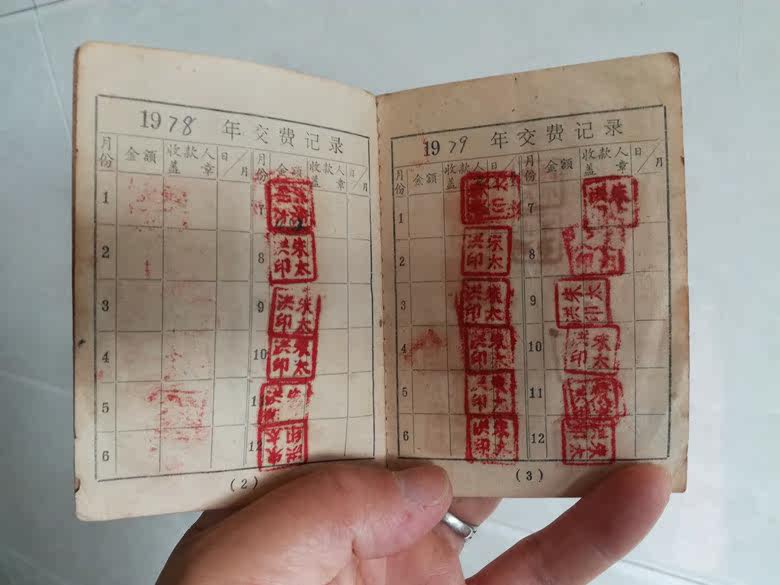 1978 年交费记录
月份 金额 收款人盖章 日/月 月份 金额 收款人盖章 日/月
1 7
2 8 朱太洪印
3 9 朱太洪印
4 10 朱太洪印
5
6 12 朱太洪印
(2)
1979 年交费记录
月份 金额 收款人盖章 日/月 月份 金额 收款人盖章 日/月
1 7 朱洪
2 朱太洪印 8 印
3 朱太洪印 9 朱
4 朱太洪印 10 朱太洪印
5 11
6 朱太洪印 12
(3)